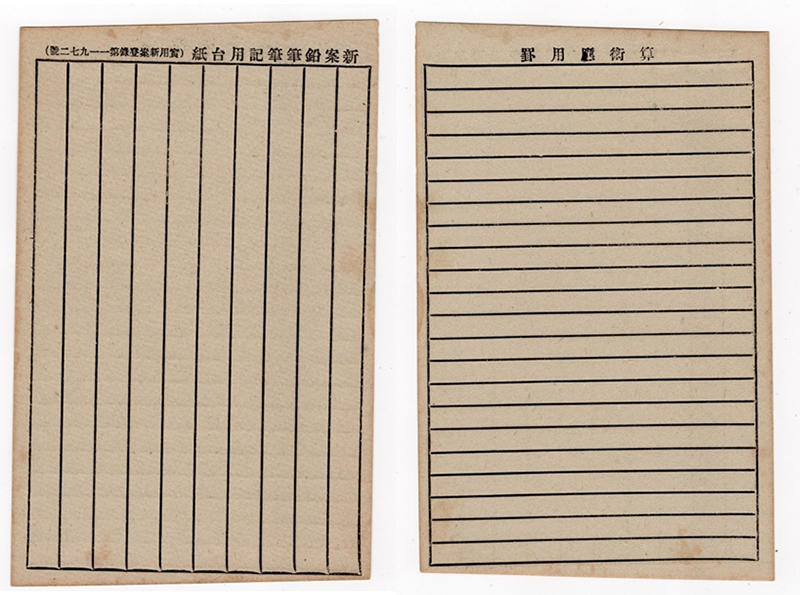 新案鉛筆筆記用台紙(實用新案登錄第一一九七二號)
算術應用罫